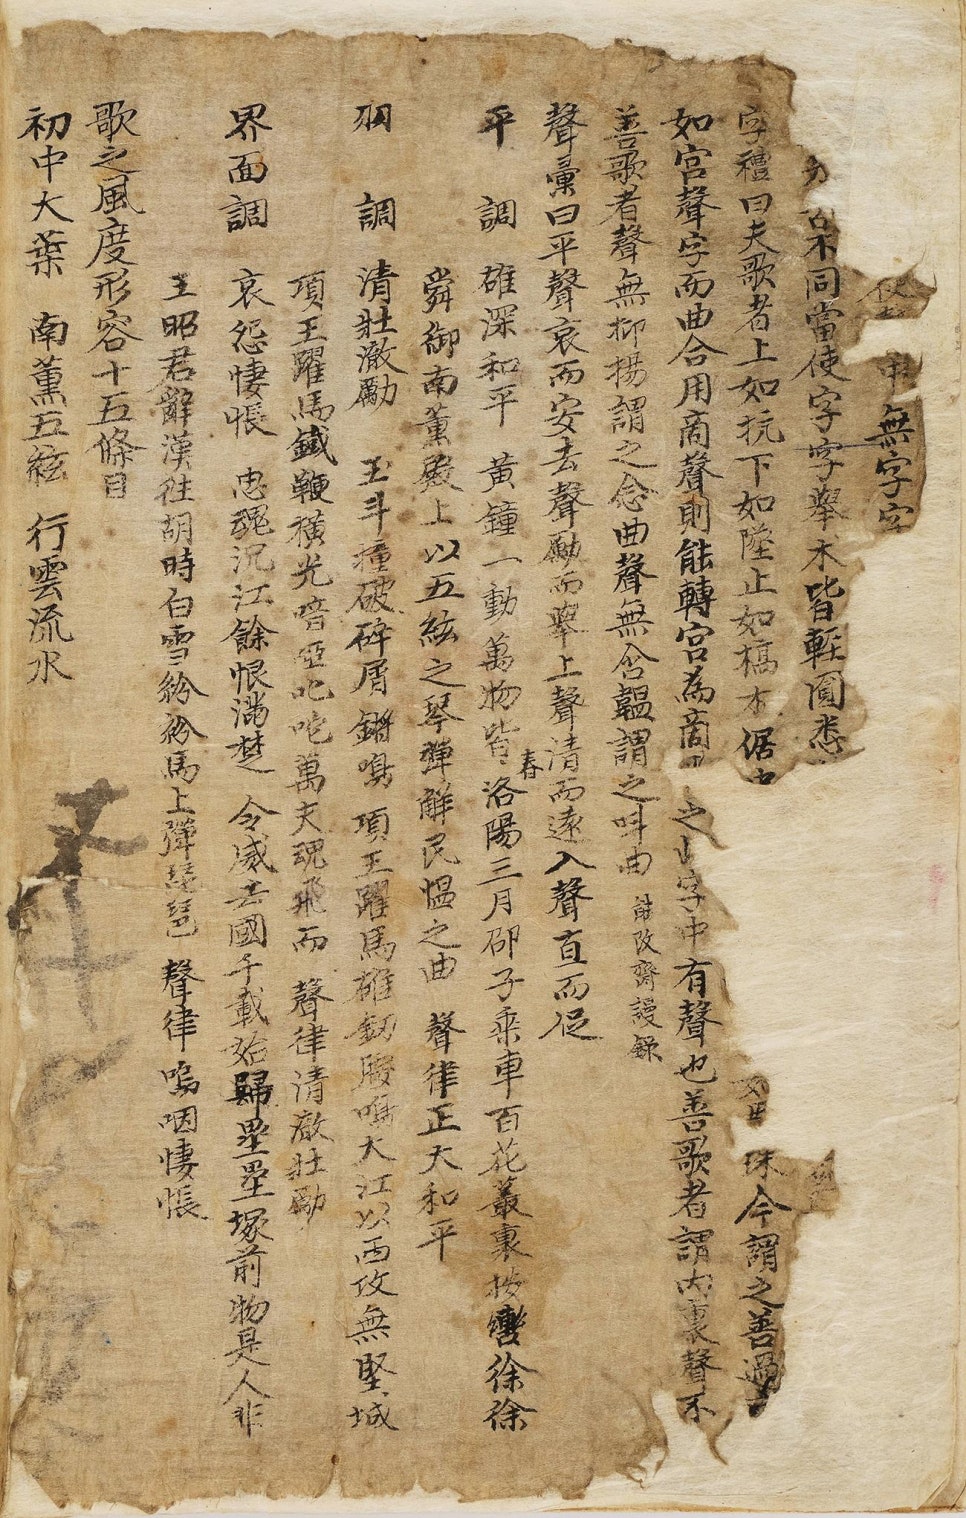 中無字字
不同當使字字舉木皆輕圓悉
字禮曰夫歌者上如抗下如墜止如槁木倨中 珠今謂之善過
如宮聲字而曲合用商聲則能轉宮為商 之此字中有聲也善歌者謂內裏聲不
善歌者聲無抑揚謂之念曲聲無含韞謂之叫曲 能改齋謾錄
聲彙曰平聲哀而安去聲勵而擧上聲清而遠入聲直而促
平 調 雄深和平 黃鐘一動萬物皆春 洛陽三月邵子乘車百花叢裏按轡徐徐
舜御南薰殿上以五絃之琴彈解民慍之曲 聲律正大和平
羽 調 清壯澈勵 玉斗撞破碎屑鏘鳴 項王躍馬雄劒腰鳴大江以西攻無堅城
項王躍馬鐵鞭橫光喑啞叱咤萬夫魂飛而 聲律清澈壯勵
界面調 哀怨悽悵 忠魂沉江餘恨滿楚 令威去國千載始歸壘壘塚前物是人非
王昭君辭漢往胡時白雪紛紛馬上彈琵琶 聲律嗚咽悽悵
歌之風度形容十五條目
初中大葉 南薰五絃 行雲流水